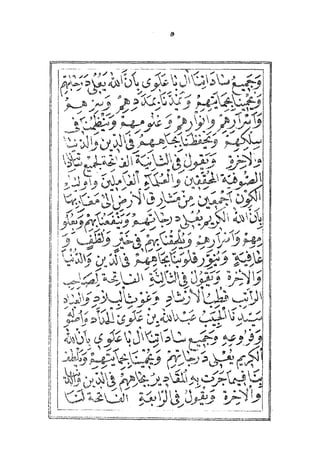 ٥
وَجَمِيْعِ سَادَاتِنَا آلِ بَا عَلَوِي بِأَنَّ اللهَ يُعْلِي دَرَجَاتِهِمْ
وَيُحْيِيْنَا بِحَيَاتِهِمْ وَيُمِدُّنَا بِمَدَدِهِمْ وَبِسِرِّهِمْ
وَأَسْرَارِهِمْ وَأَنْوَارِهِمْ وَعُلُومِهِمْ وَيَنْظِمُنَا فِي
سِلْكِهِمْ وَيَحْفَظُنَا بِجَاهِهِمْ فِي الدِّينِ وَالدُّنْيَا
وَالْآخِرَةِ وَيَقُولُ فِي الثَّانِيَةِ الْفَاتِحَةَ لِجَمِيْعِ سَادَاتِنَا
الصُّوفِيَّةِ الْمُحَقِّقِيْنَ وَالْعُلَمَاءِ الْعَامِلِيْنَ وَأَوْلِيَاءِ
الْكَوْنِ أَجْمَعِيْنَ مِنْ مَشَارِقِ الْأَرْضِ إِلَى مَغَارِبِهَا
بِأَنَّ اللهَ الْكَرِيْمَ يُعْلِي دَرَجَاتِهِمْ وَيَنْفَعُنَا بِهِمْ وَبِعُلُو
مِهِمْ وَأَسْرَارِهِمْ وَيُلْحِقُنَا بِهِمْ فِي خَيْرٍ وَلُطْفٍ وَ
عَافِيَةٍ وَيُنَوِّرُ قُلُوبَنَا بِجَاهِهِمْ فِي الدِّينِ وَالدُّنْيَا
وَالْآخِرَةِ وَيَقُولُ فِي الثَّالِثَةِ الْفَاتِحَةَ لِصَاحِبِ
الرَّاتِبِ قُطْبِ الْإِرْشَادِ وَغَوْثِ الْبِلَادِ وَالْعِبَادِ
سَيِّدِنَا الْحَبِيْبِ عَبْدِ اللهِ بْنِ عَلَوِي الْحَدَّادِ وَأُصُولِهِ
وَفُرُوعِهِ وَجَمِيْعِ سَادَاتِنَا آلِ بَا عَلَوِي بِأَنَّ اللهَ
الْكَرِيْمَ يُعْلِي دَرَجَاتِهِمْ وَيُحْيِيْنَا بِحَيَاتِهِمْ وَيَلْطُفُ
بِنَا فِيْمَا جَرَتْ بِهِ الْمَقَادِيْرُ بِجَاهِهِمْ فِي الدِّينِ وَالدُّنْيَا
وَالْآخِرَةِ وَيَقُولُ فِي الرَّابِعَةِ الْفَاتِحَةَ لَنَا